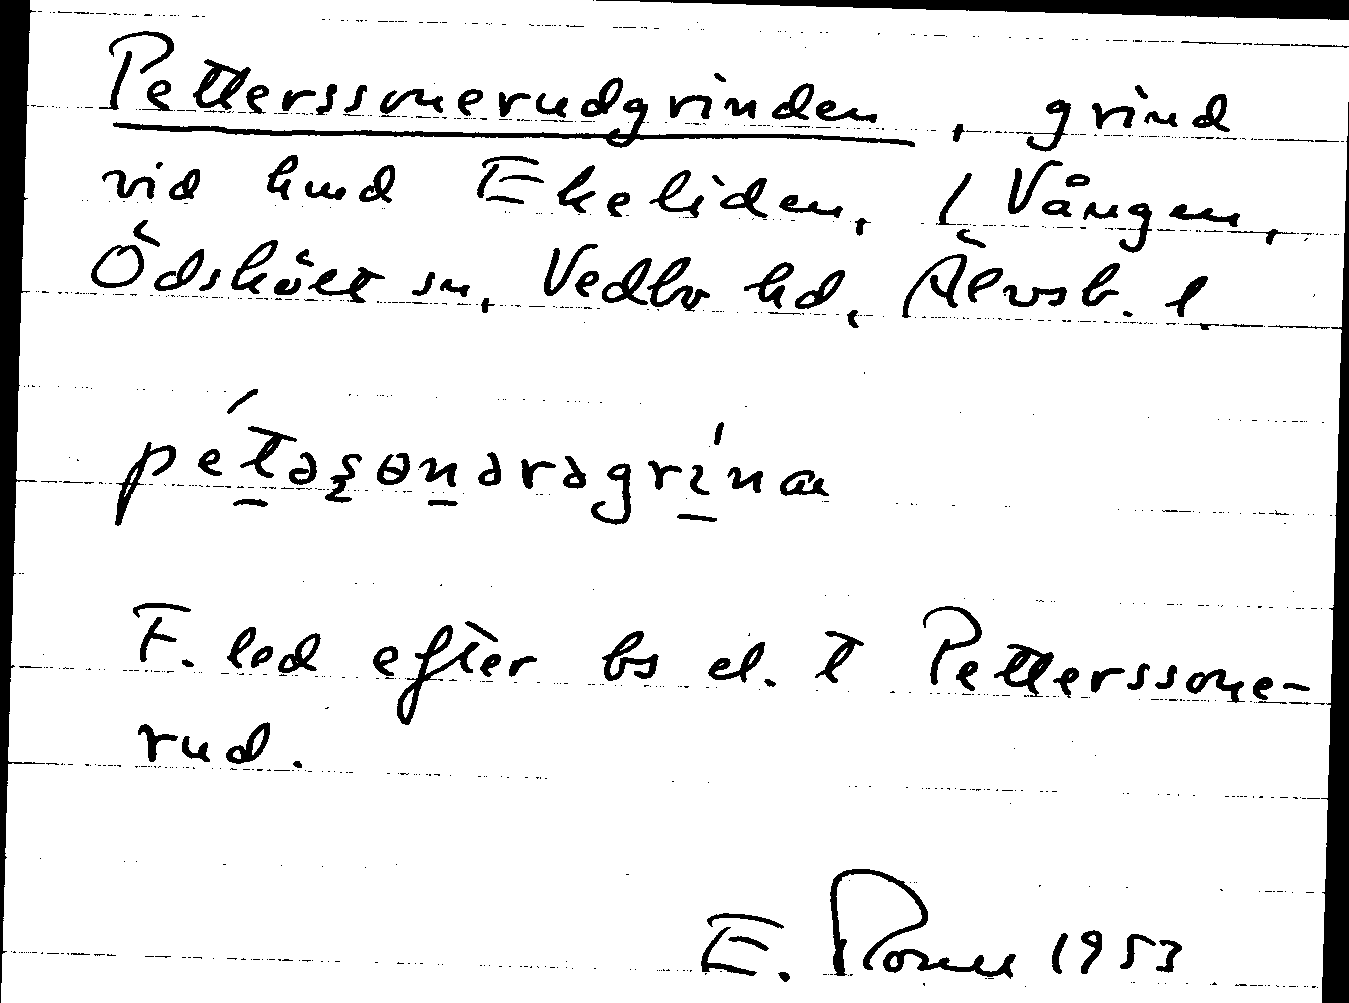 Petterssonerudgrinden, grind
vid hmd Ekeliden, 1 Vången,
Ödskölt sn, Vedbo hd, Älvsb. l.
pétəʂɵnərəgrínan
F. led efter bs el. t Petterssone-
rud.
E. 1953